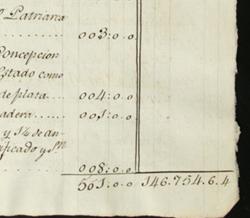 Patriarca
003:0.0
Concepcion
Estado como
de plata.... 004:0.0
adera...... 001:0.0
y 1/2 de an
ificado y sn
008:0.0
561:0.0 146.754.6.4